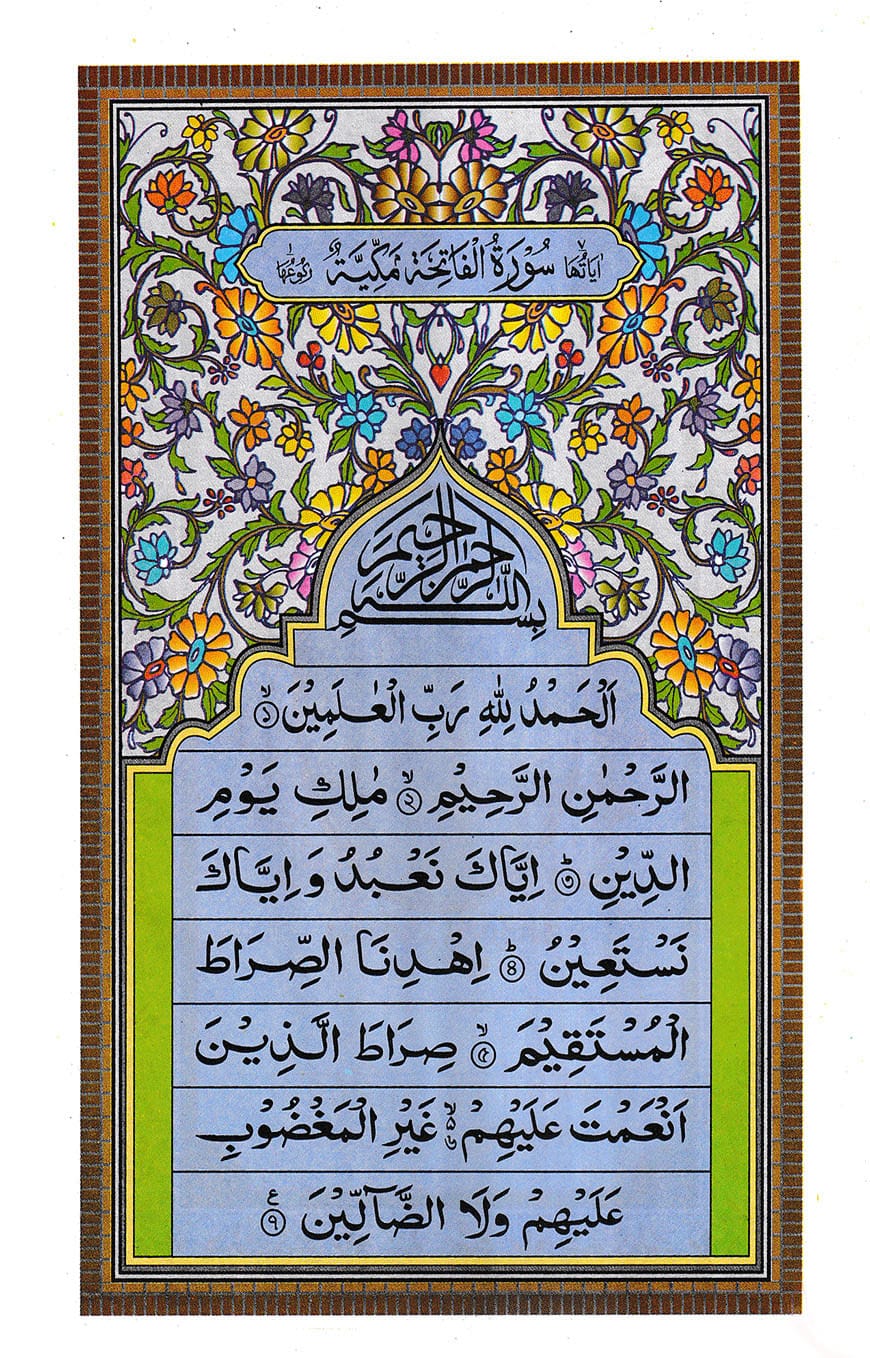 اٰيَاتُهَا ۷ سُوْرَةُ الْفَاتِحَةِ مَكِّيَّةٌ رُكُوْعُهَا ۱
بِسْمِ اللّٰهِ الرَّحْمٰنِ الرَّحِيْمِ
اَلْحَمْدُ لِلّٰهِ رَبِّ الْعٰلَمِيْنَ ۙ﴿۱﴾
الرَّحْمٰنِ الرَّحِيْمِ ۙ﴿۲﴾ مٰلِكِ يَوْمِ
الدِّيْنِ ؕ﴿۳﴾ اِيَّاكَ نَعْبُدُ وَ اِيَّاكَ
نَسْتَعِيْنُ ؕ﴿۴﴾ اِهْدِنَا الصِّرَاطَ
الْمُسْتَقِيْمَ ۙ﴿۵﴾ صِرَاطَ الَّذِيْنَ
اَنْعَمْتَ عَلَيْهِمْ ۙ۵ غَيْرِ الْمَغْضُوْبِ
عَلَيْهِمْ وَلَا الضَّآلِّيْنَ ع﴿۹﴾